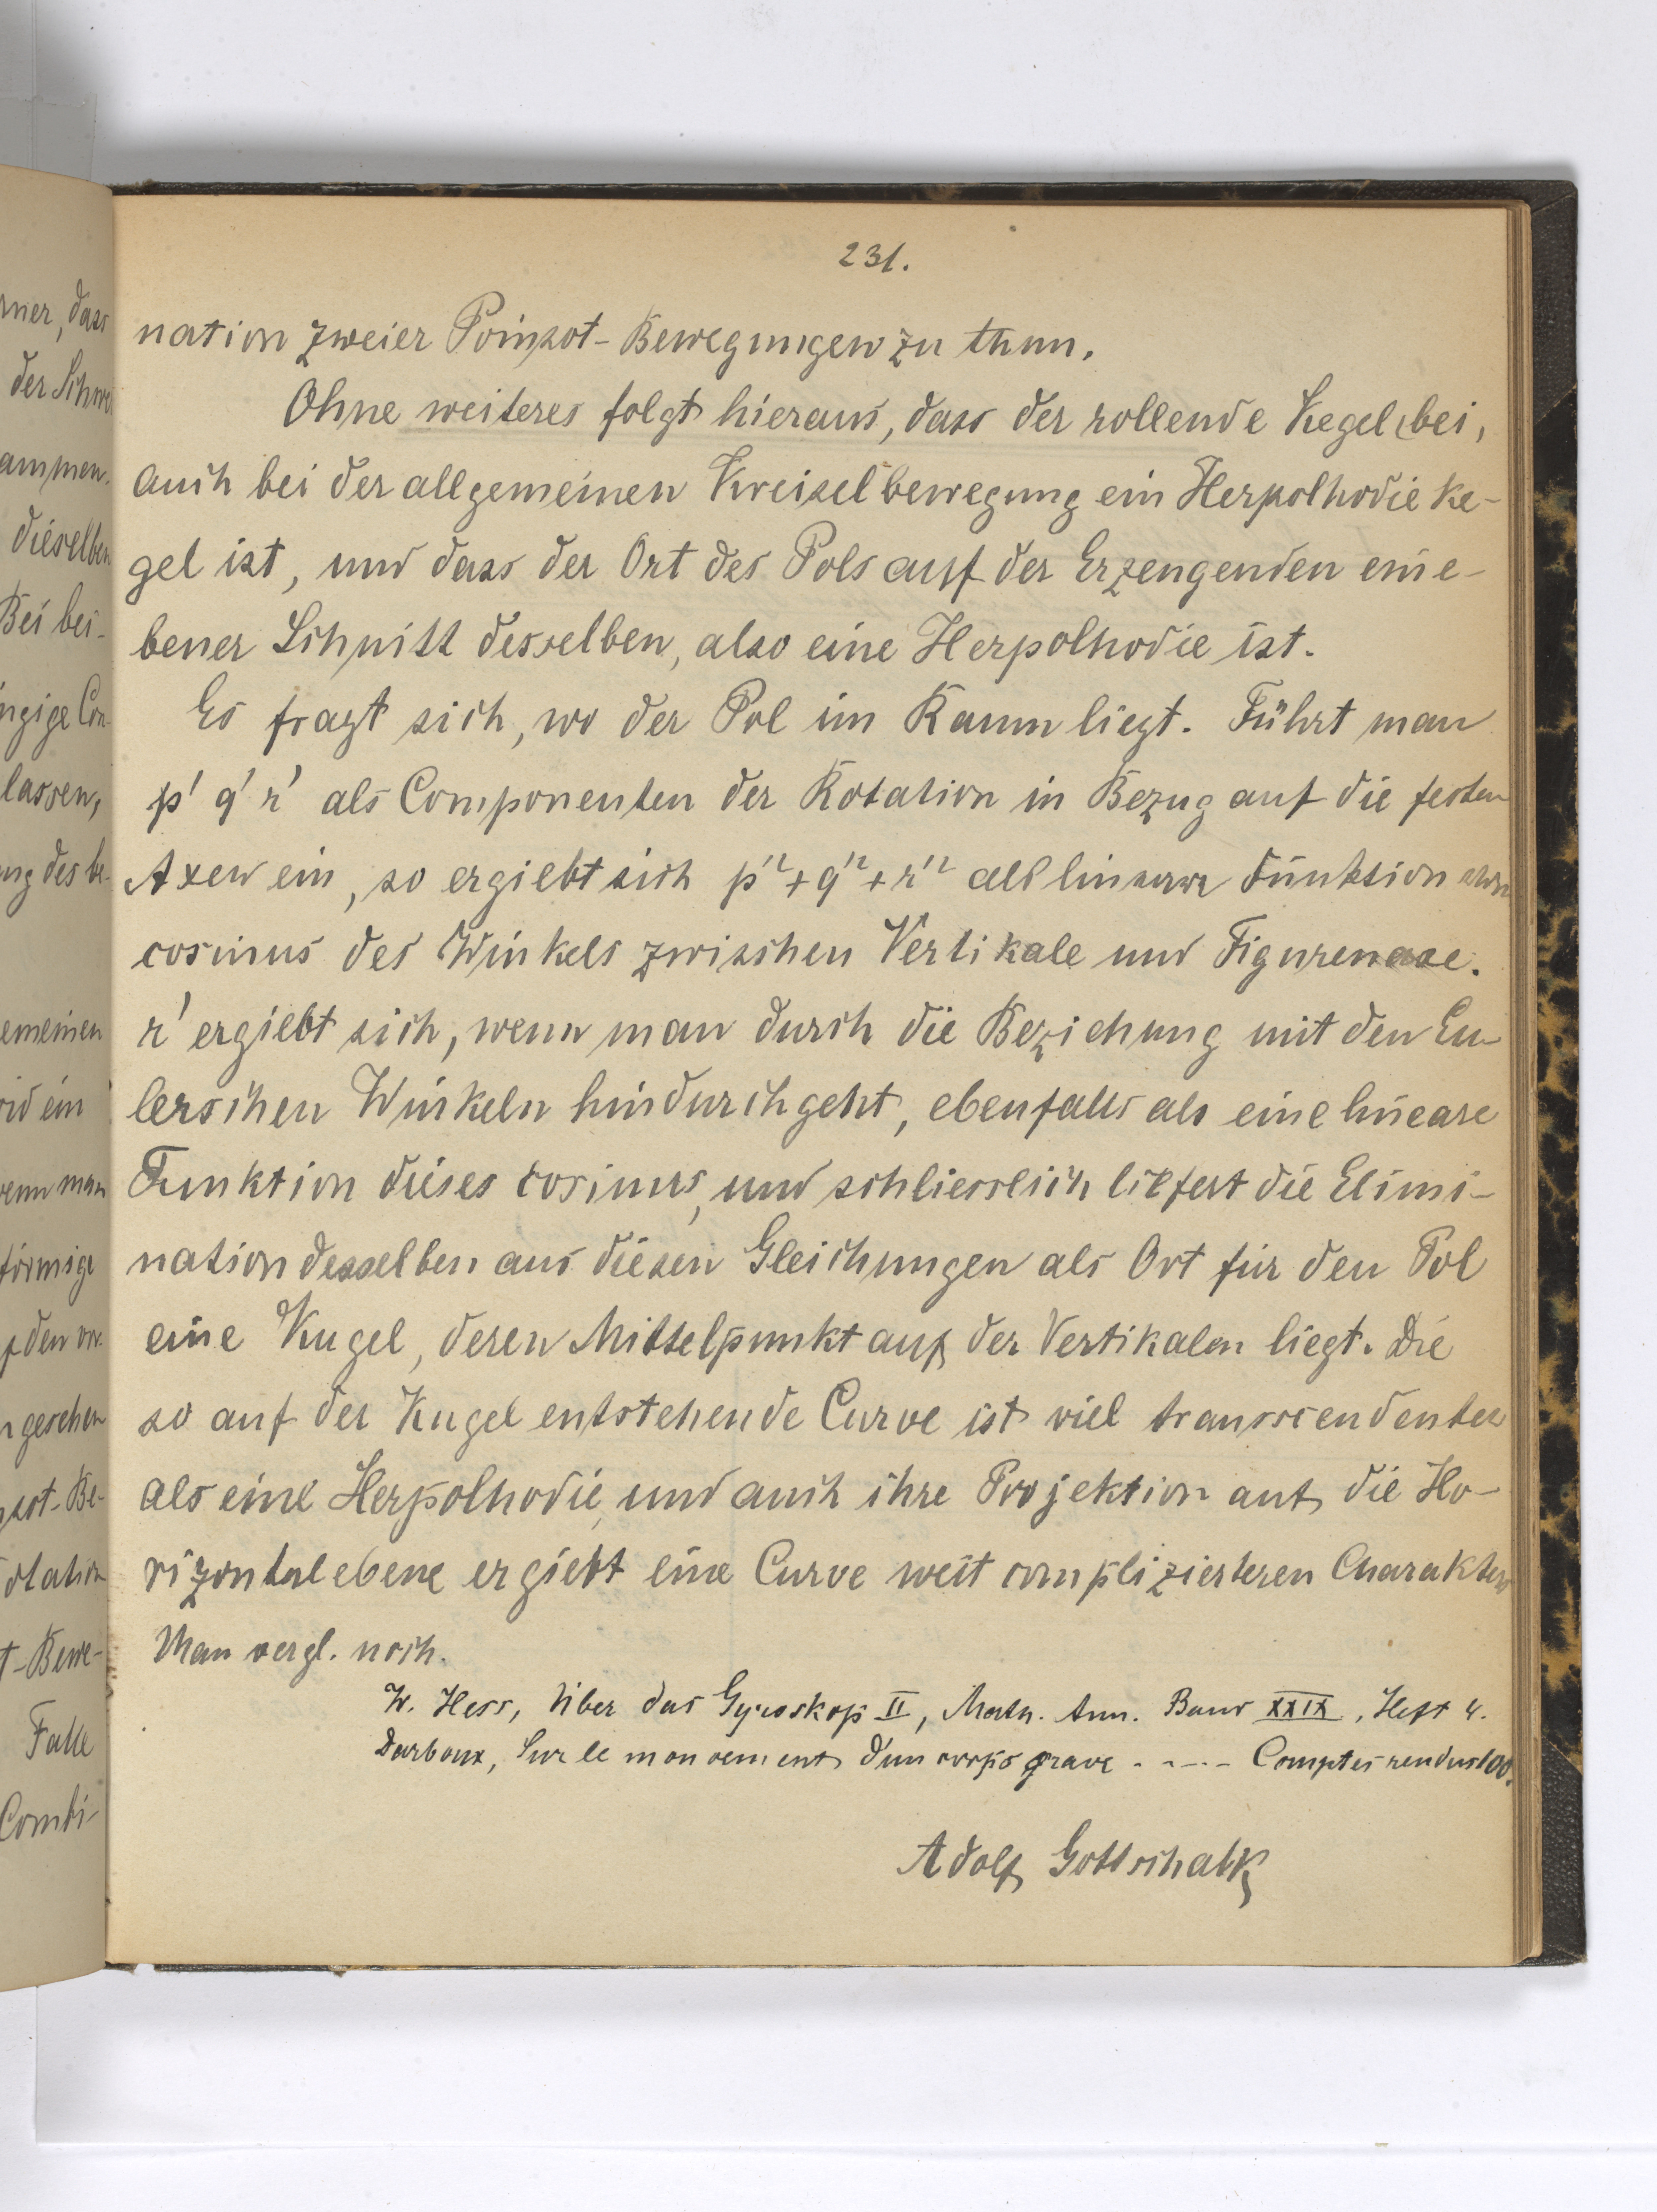 231.
nation zweier Poinsot-Bewegungen zu thun.
Ohne weiteres folgt hieraus, dass der rollende Kegel bei,
auch bei der allgemeinen Kreiselbewegung ein Herpolhodieke-
gel ist, und dass der Ort des Pols auf der Erzeugenden ein e-
bener Schnitt desselben, also eine Herpolhodie ist.
Es fragt sich, wo der Pol im Raum liegt. Führt man
p' q' r' als Componenten der Rotation in Bezug auf die festen
Axen ein, so ergiebt sich p'²+q'²+r'² als lineare Funktion vom
cosinus des Winkels zwischen Vertikale und Figurenaxe.
r' ergiebt sich, wenn man durch die Beziehung mit den Eu-
lerschen Winkeln hindurchgeht, ebenfalls als eine lineare
Funktion dieses cosinus, und schliesslich liefert die Elimi-
nation desselben aus diesen Gleichungen als Ort für den Pol
eine Kugel, deren Mittelpunkt auf der Vertikalen liegt. Die
so auf der Kugel entstehende Curve ist viel transcendenter
als eine Herpolhodie, und auch ihre Projektion auf die Ho-
rizontalebene ergiebt eine Curve weit complizierteren Charakters
Man vergl. noch.
W. Hess, Über das Gyroskop II, Math. Ann. Band XXIX, Heft 4.
Darboux, Sur le mouvement d'un corps grave ..--- Comptes rendus 100.
Adolf Gottschalk
mer, dass
der Schwe
ammen.
dieselben
Bei bei-
ngige Con-
lassen,
ung des be-
emeinen
id ein
wenn man
förmige
f den vor-
n gesehen
sot-Be-
otation
t-Bewe-
Falle
Combi-